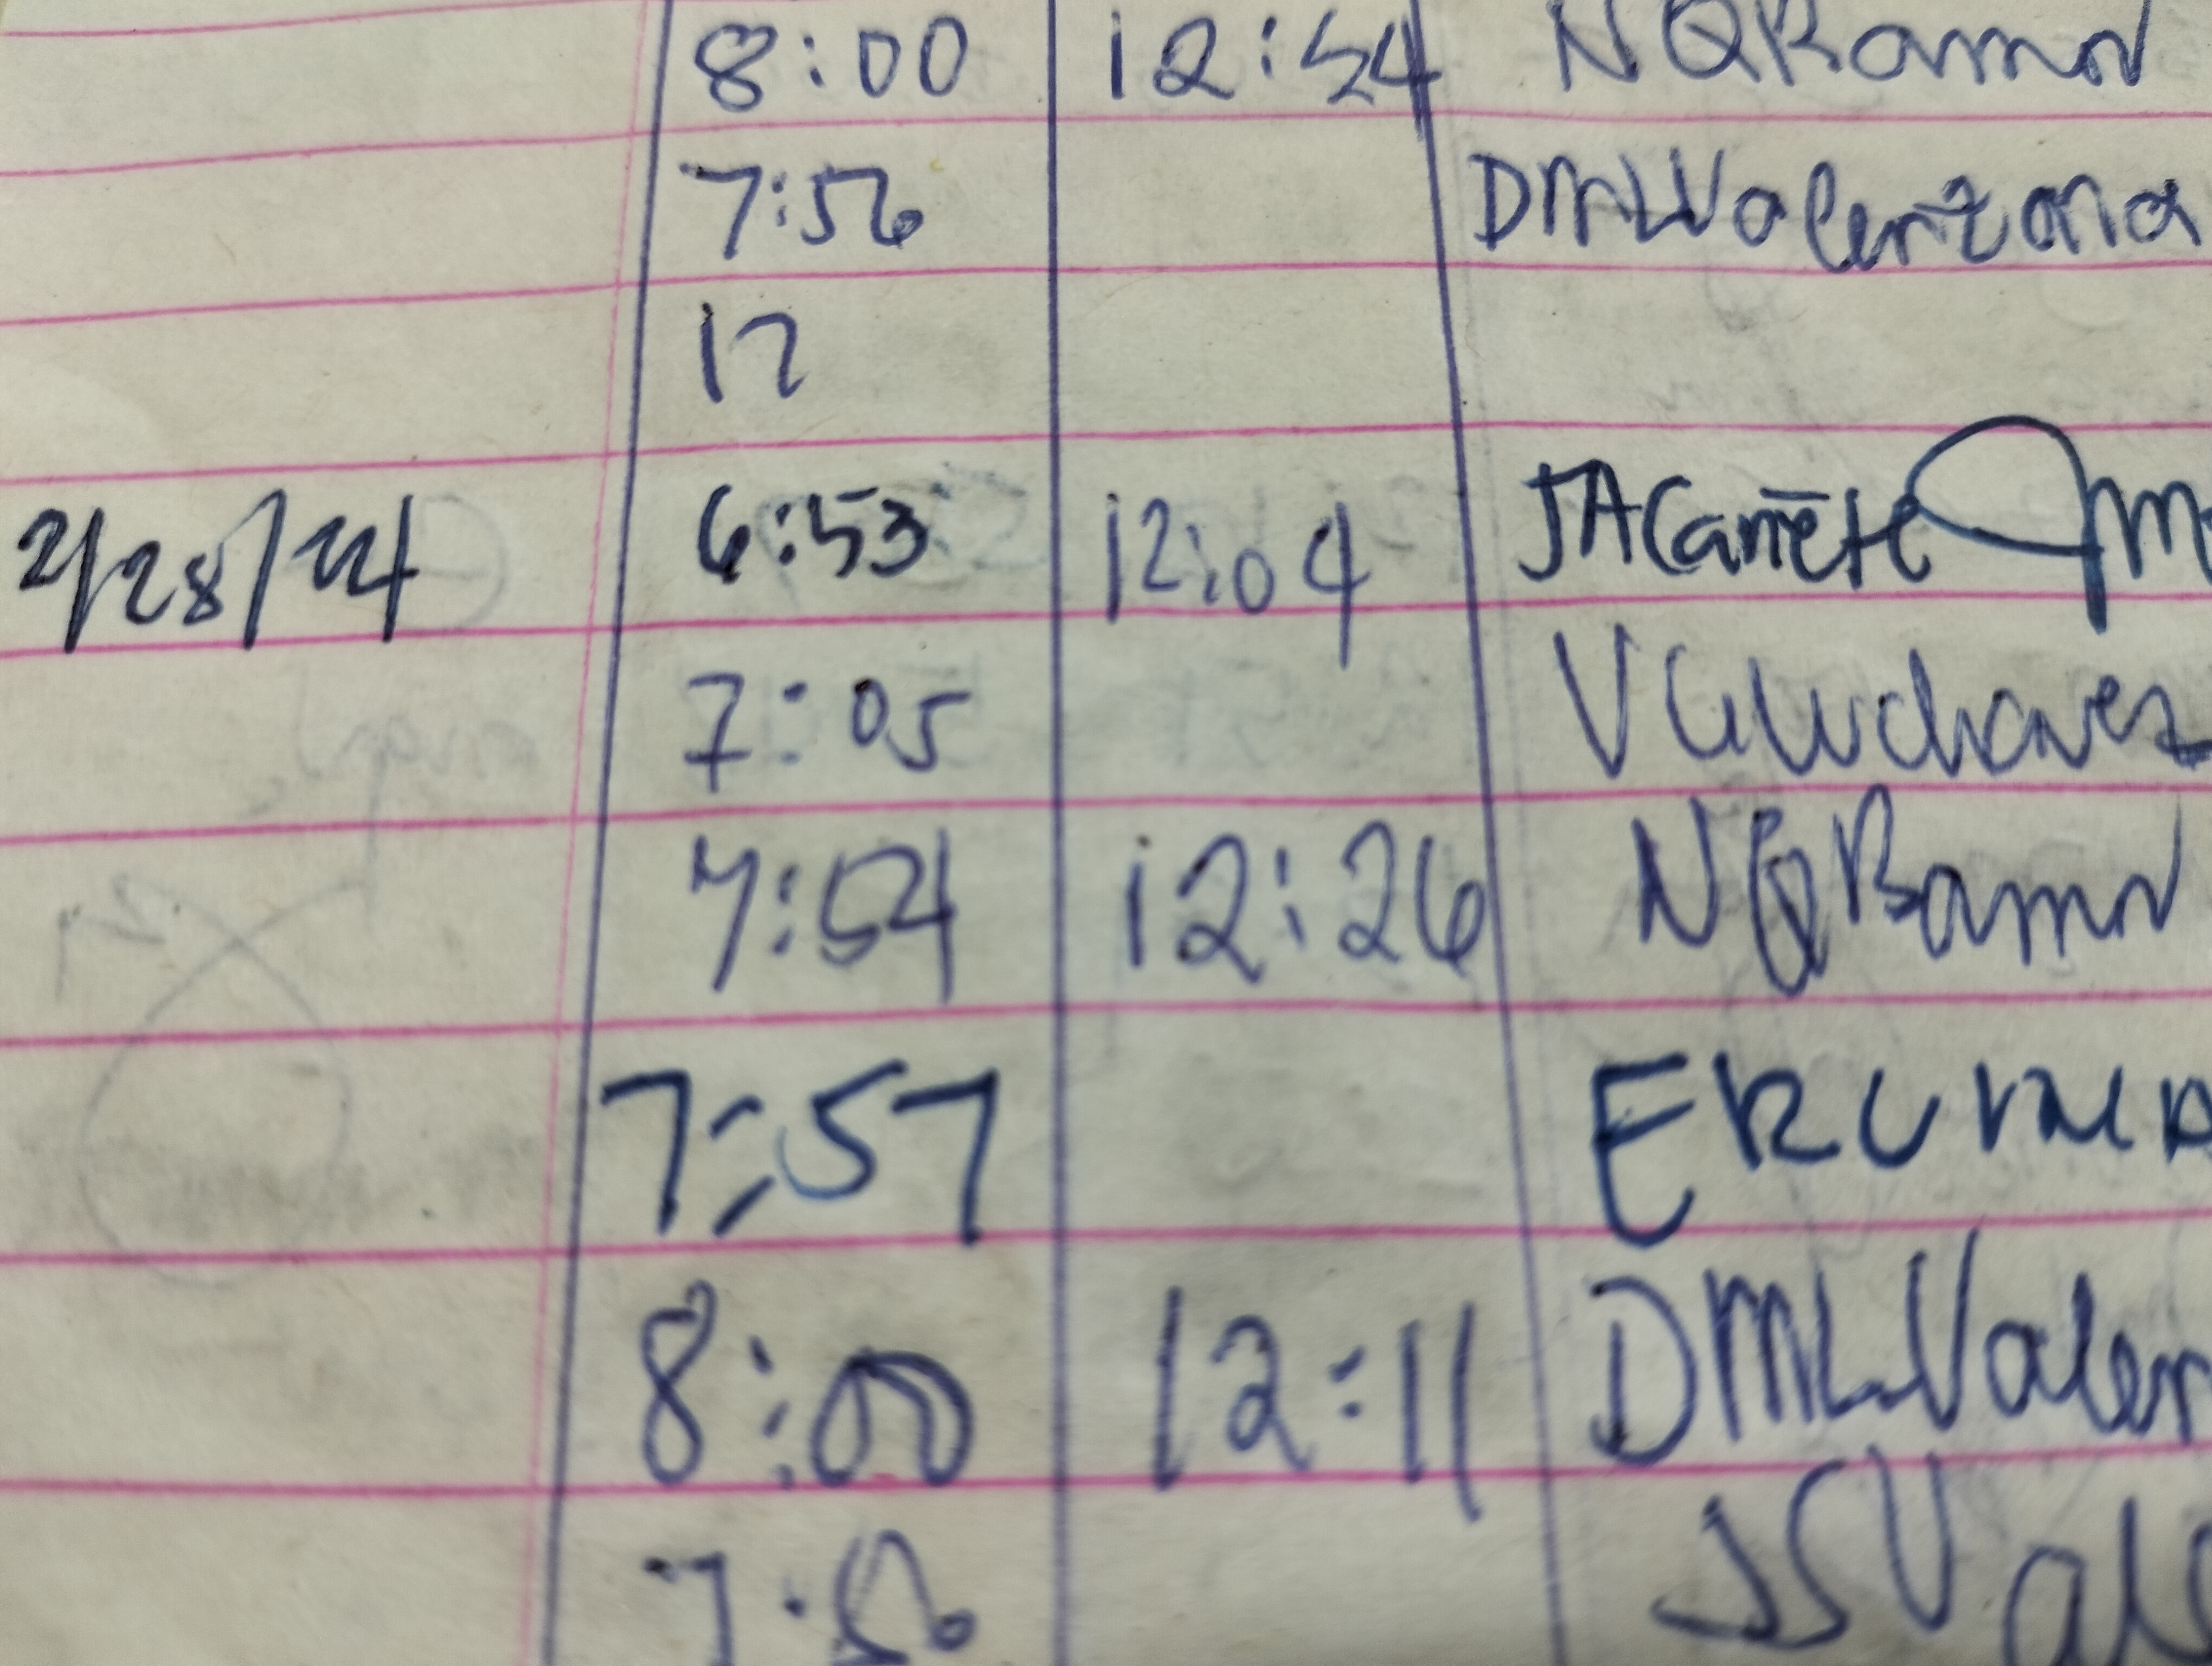 8:00 12:54 NQRamn
7:56 DMLValenzona
12
2/28/24 6:53 12:04 JACañete
7:05 VGLuchavez
7:54 12:26 NQRamn
7:57
8:00 12:11 DMLValen
7:50 JSVale